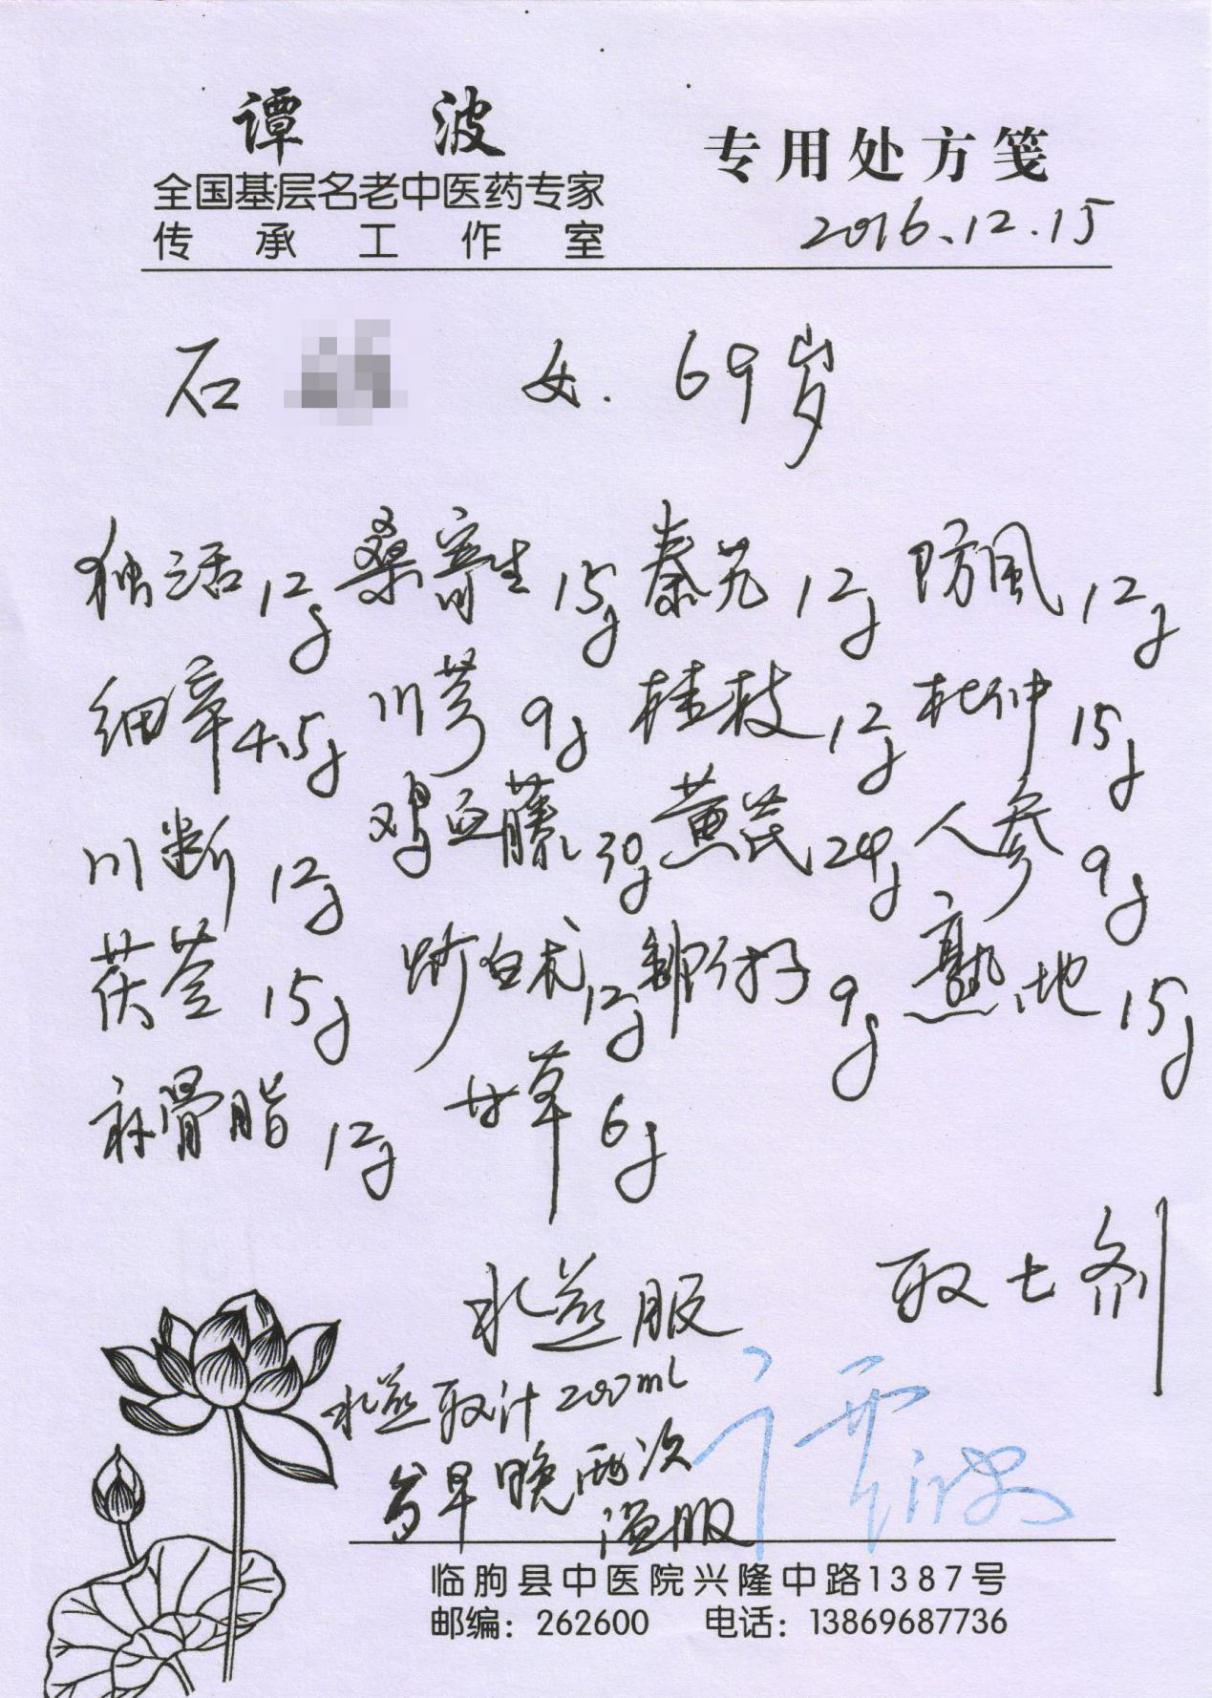 谭 波
全国基层名老中医药专家
传承工作室
专用处方笺
2016.12.15
石 女. 69岁
独活12g 桑寄生15g 秦艽12g 防風12g
细辛4.5g 川芎9g 桂枝12g 杜仲15g
川断12g 鸡血藤30g 黄芪24g 人参9g
茯苓15g 炒白术12g 制附子9g 熟地15g
补骨脂12g 甘草6g
水煎服 取七剂
水煎取汁200mL
分早晚两次
温服
谭波
临朐县中医院兴隆中路1387号
邮编：262600 电话：13869687736